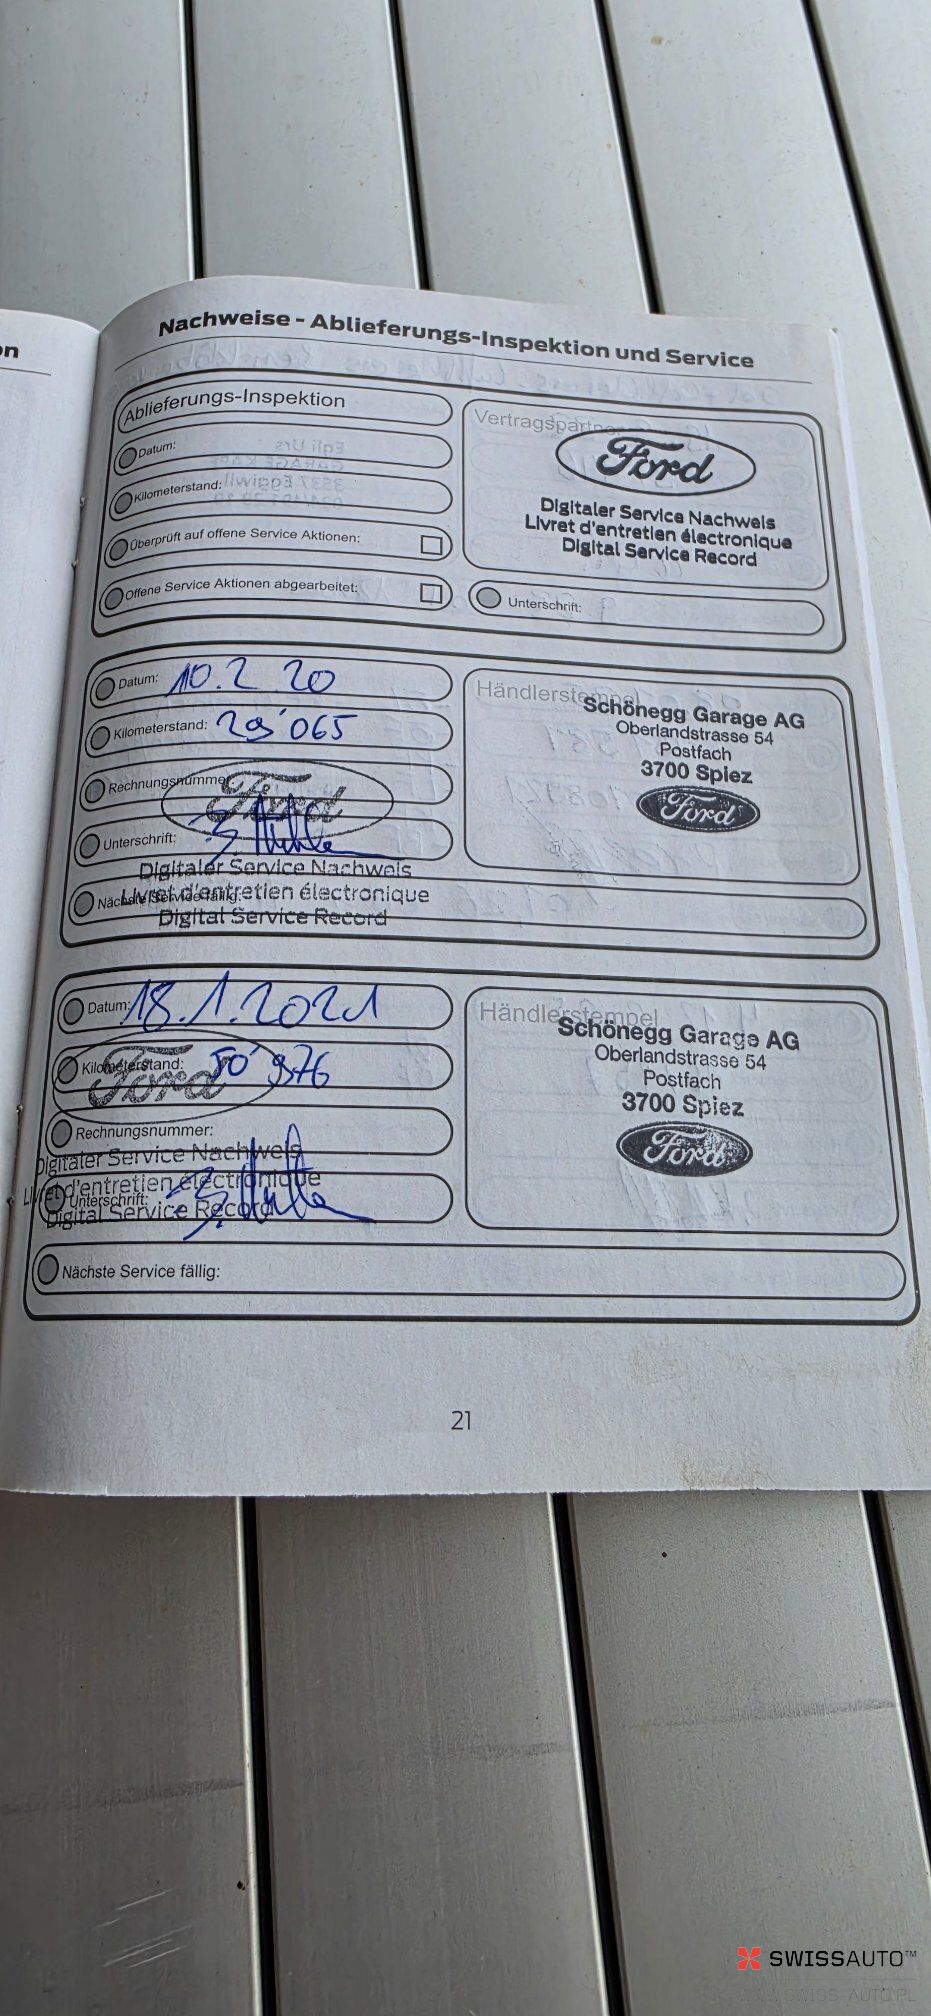 on
Nachweise - Ablieferungs-Inspektion und Service
Ablieferungs-Inspektion
Datum:
Kilometerstand:
Überprüft auf offene Service Aktionen:
Offene Service Aktionen abgearbeitet:
Vertragspartner
Ford
Digitaler Service Nachweis
Livret d'entretien électronique
Digital Service Record
Unterschrift:
Datum: 10.2 20
Kilometerstand: 29'065
Rechnungsnummer:
Ford
Unterschrift:
Digitaler Service Nachweis
Livret d'entretien électronique
Nächste Service fällig:
Digital Service Record
Händlerstempel
Schönegg Garage AG
Oberlandstrasse 54
Postfach
3700 Spiez
Ford
Datum: 18.1.2021
Kilometerstand: 50'976
Ford
Rechnungsnummer:
Digitaler Service Nachweis
Livret d'entretien électronique
Unterschrift:
Digital Service Record
Händlerstempel
Schönegg Garage AG
Oberlandstrasse 54
Postfach
3700 Spiez
Ford
Nächste Service fällig:
21
SWISSAUTO™
SWISS-AUTO.PL